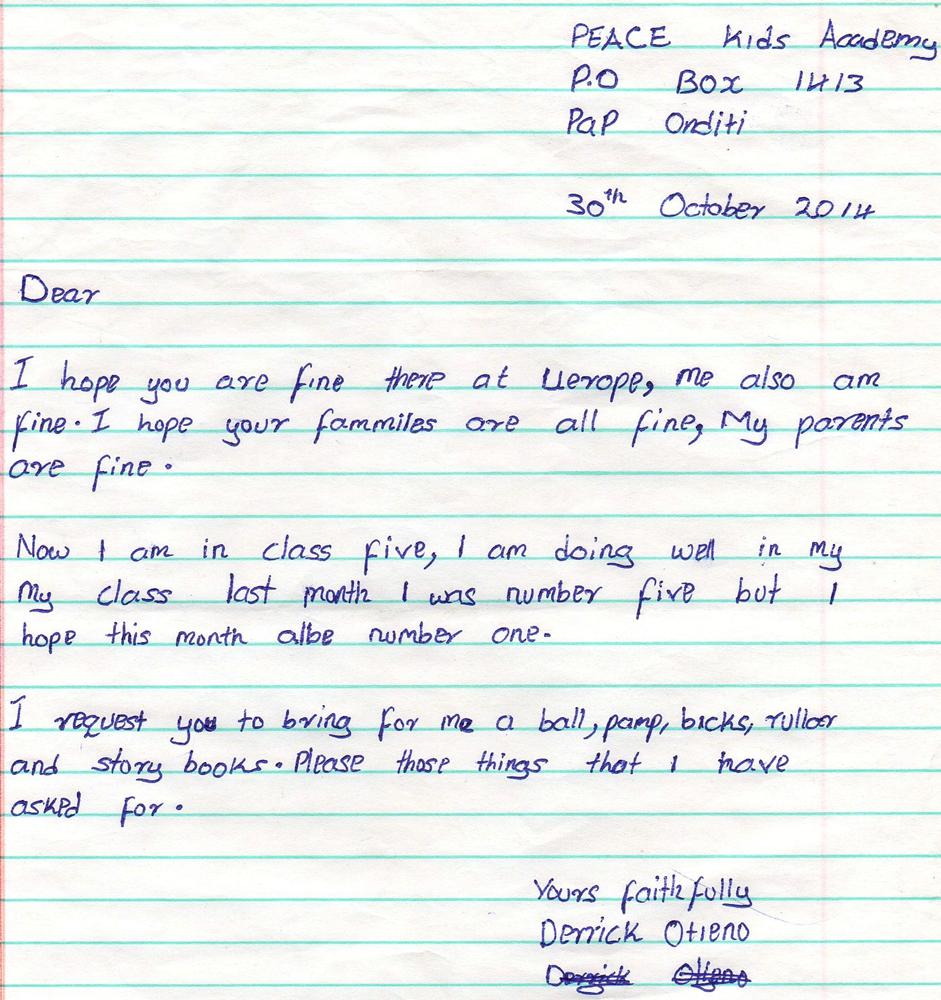 PEACE Kids Academy
P.O Box 1413
PaP Onditi
30th October 2014
Dear
I hope you are fine there at Uerope, me also am
fine. I hope your fammiles are all fine, My parents
are fine.
Now I am in class five, I am doing well in my
my class last month I was number five but I
hope this month albe number one.
I request you to bring for me a ball, pamp, bicks, ruller
and story books. Please those things that I have
asked for.
Yours faithfully
Derrick Otieno
Derrick Otieno